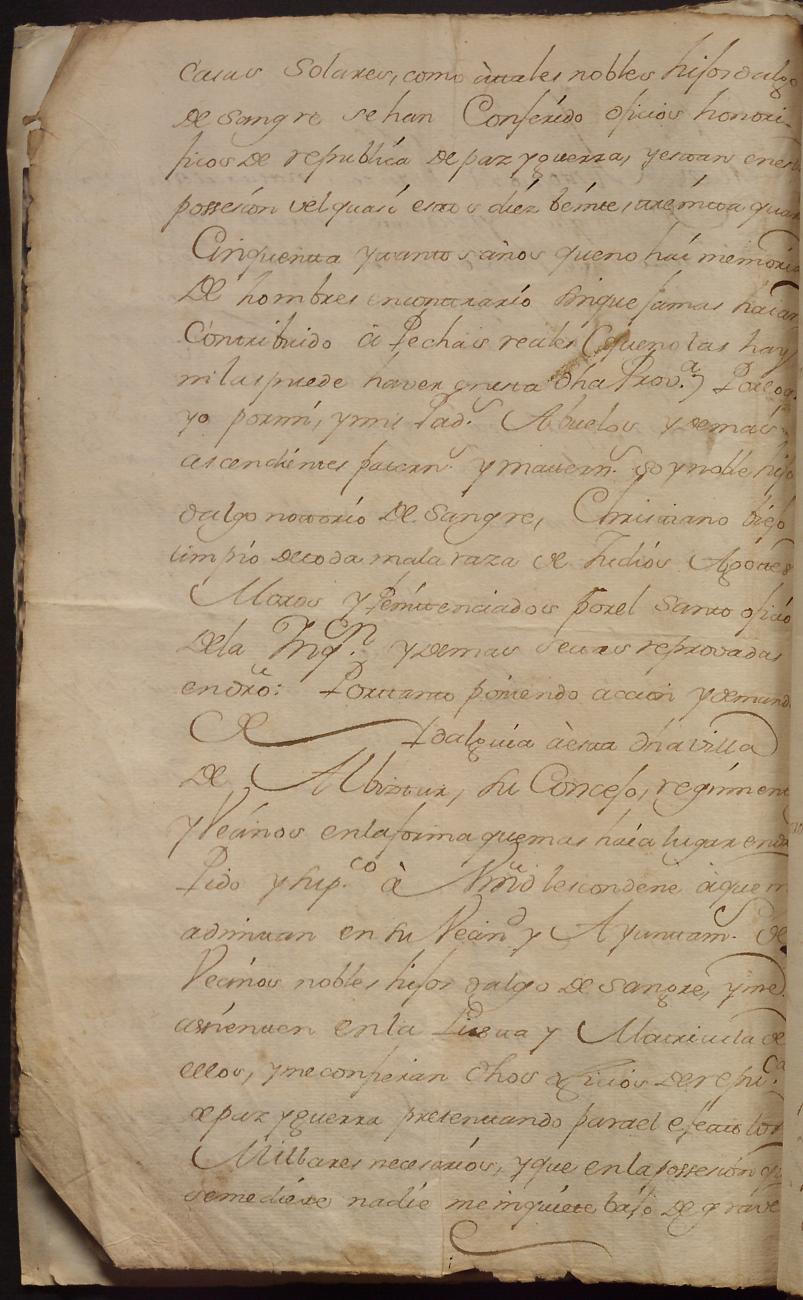 Casas Solares, como à tales nobles hijos dalgo
de Sangre se han Conferido oficios honori-
ficos de republica de paz y guerra, y estan en esta
possesión vel quasi estos diéz beinte, treinta quar
Cinquenta y tantos años que no hai memoria
De hombres encontrario sin que jamas haian
Contribuido à Pechas reales (que no las hay
ni las puede haver en esta dha Prov.ª)
yo por mi, y mis Pad.s Abuelos y demas
ascendientes patern.s y matern.s soy noble hijo
dalgo notorio de Sangre, Christiano biejo
limpio de toda mala raza de Judios Agotes
Moros y Penitenciados por el Santo oficio
De la Inq.on y demas sectas reprovadas
en dro: Por tanto poniendo accion y demand
de Idalguia à esta dha villa
De Albiztur, su Concejo, regimien
y Vecinos en la forma que mas haia lugar en
Pido y sup.co à Vmd les condene à que m
admitan en su Vecind y Ayuntam. de
Vecinos nobles hijos dalgo de Sangre, y me
assienten en la Lista y Matricula de
ellos, y me confieran dhos oficios de repu.ca
de paz y guerra presentando para el efecto los
Millares necesarios, y que en la possesion q
se me diére nadie me inquiete bajo de gráve